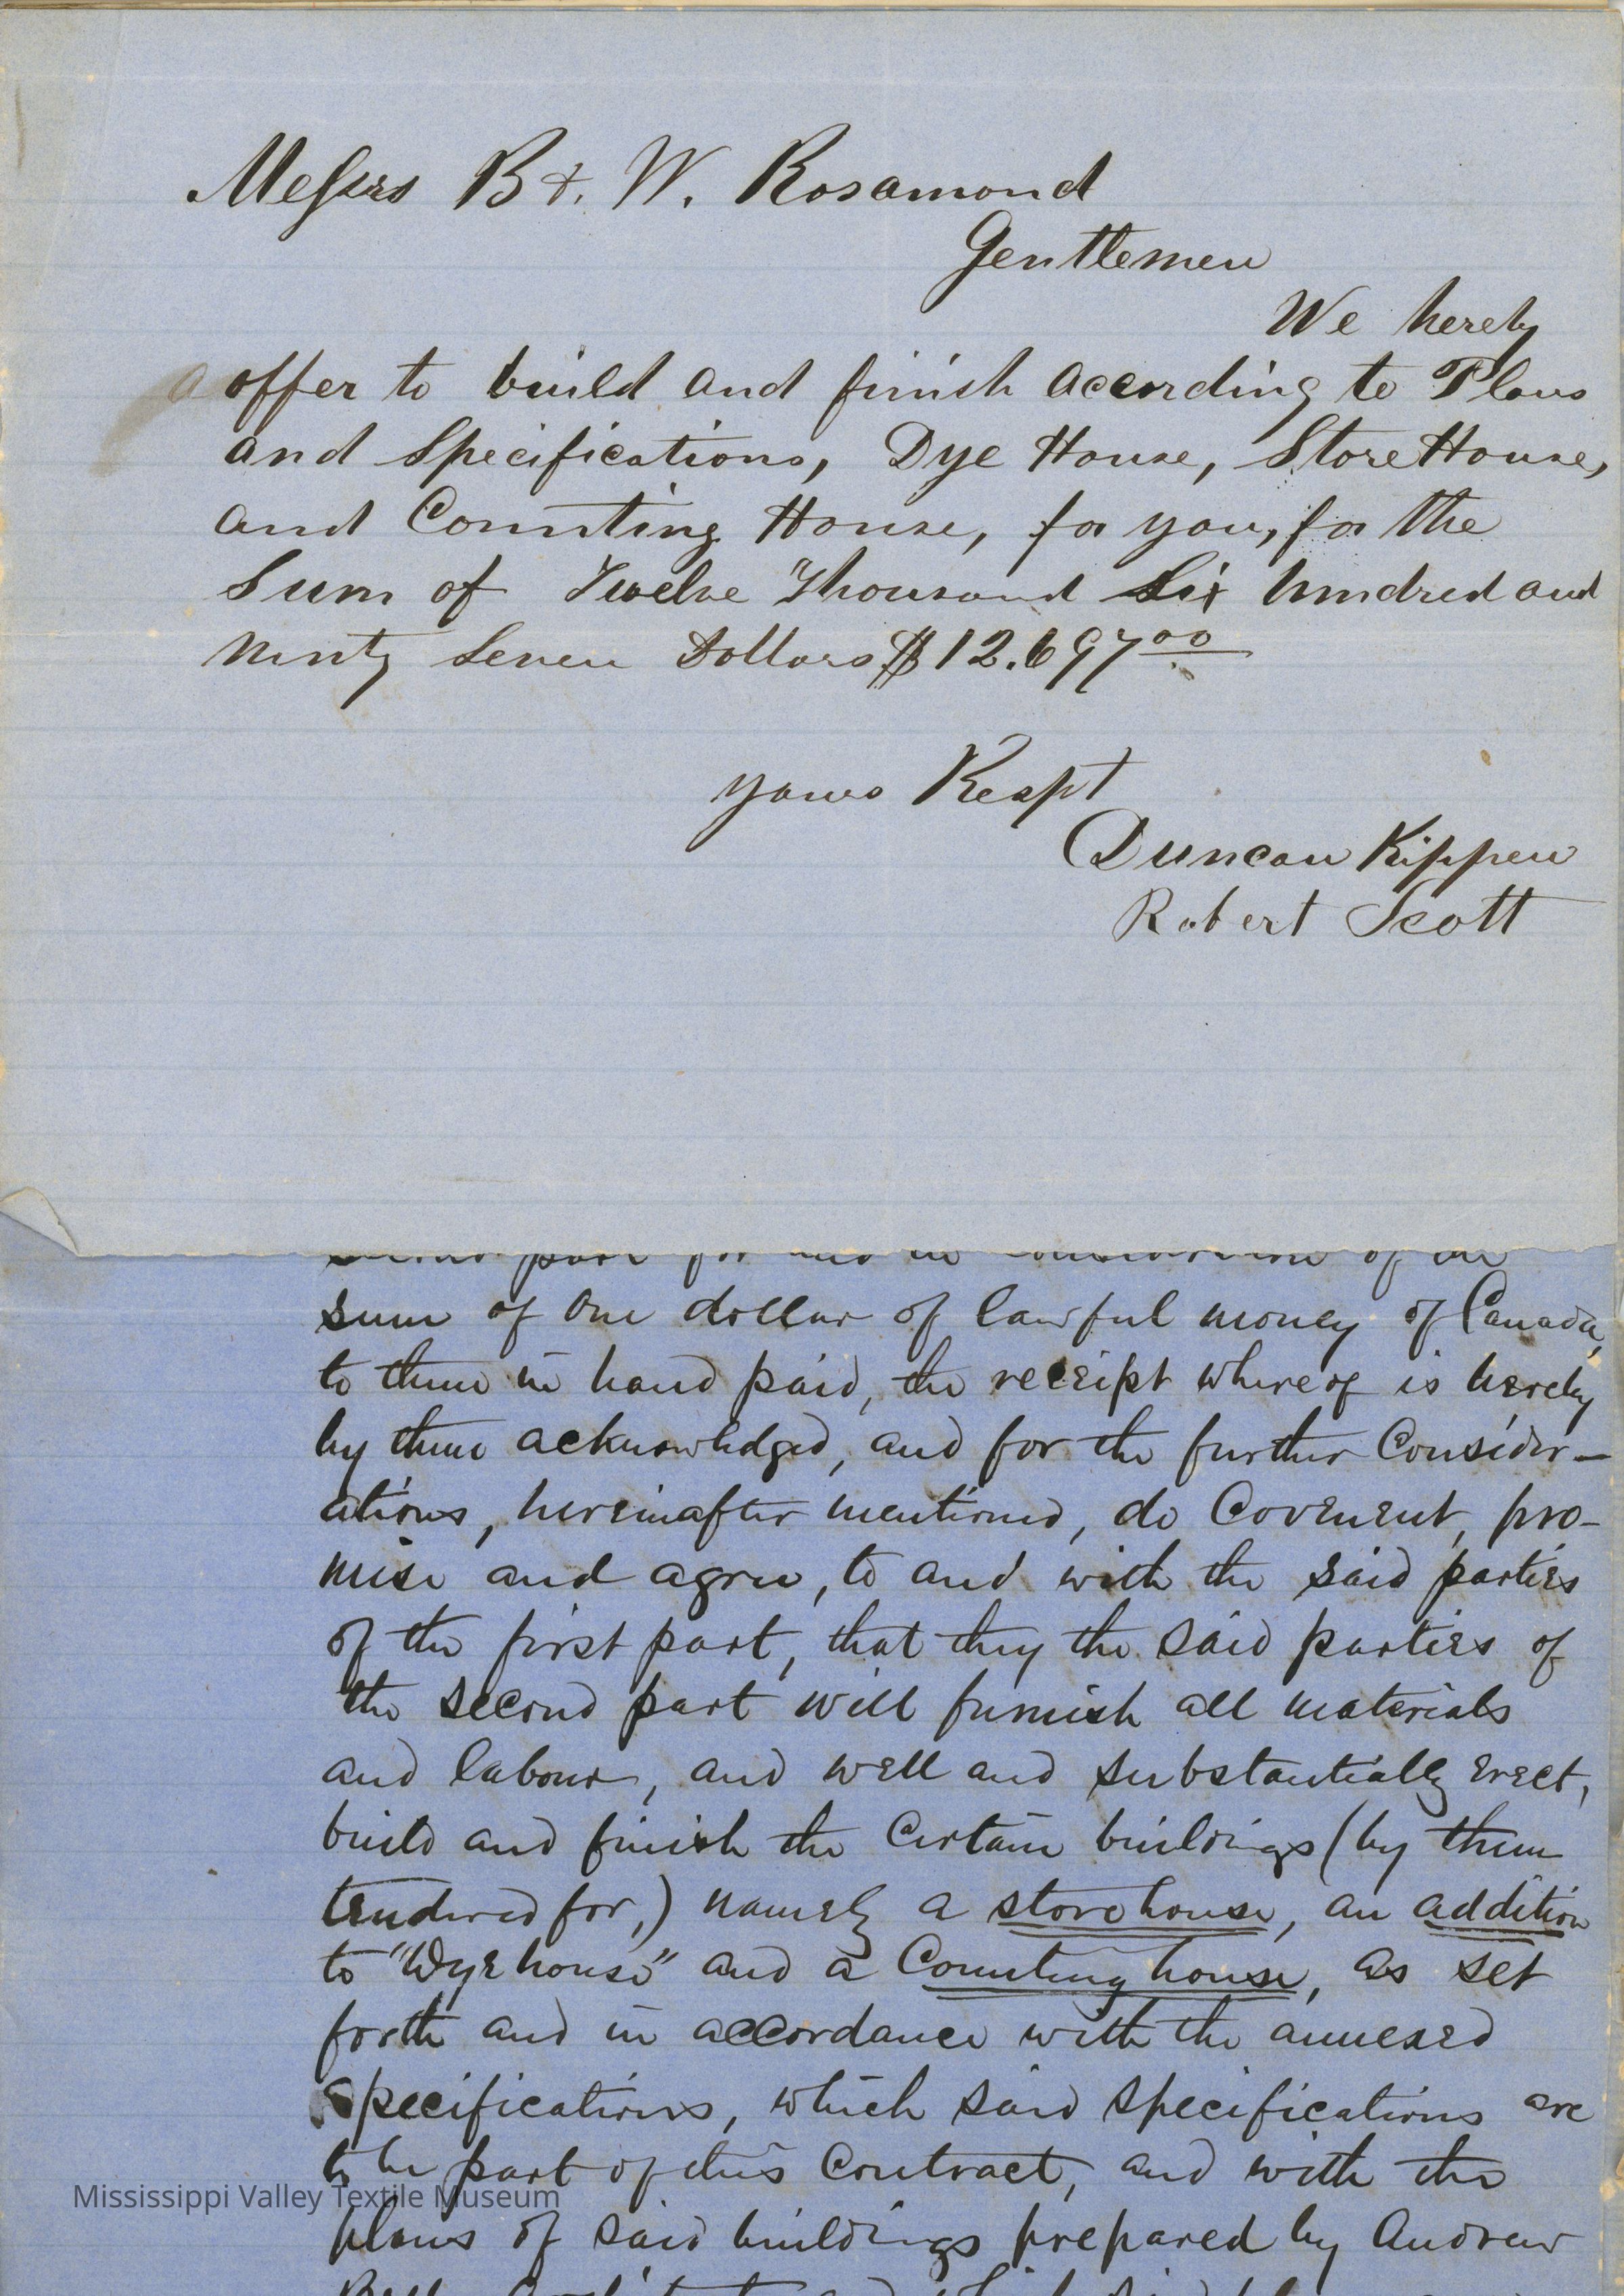 Messrs B & W. Rosamond
Gentlemen
We hereby
offer to build and finish according to Plans
and Specifications, Dye House, Store House,
and Counting House, for you, for the
Sum of Twelve Thousand Six hundred and
Ninty Seven Dollars $12.697 00
yours Respt
Duncan Kippen
Robert Scott
second part for and in consideration of the
sum of one dollar of lawful money of Canada,
to them in hand paid, the receipt whereof is hereby
by them acknowledged, and for the further Consider-
ations, hereinafter mentioned, do Covenent, pro-
mise and agree, to and with the said parties
of the first part, that they the said parties of
the second part will furnish all materials
and labour, and well and substantially erect,
build and finish the certain buildings (by them
tendered for,) namely a storehouse, an addition
to "Dyehouse" and a Counting house, as set
forth and in accordance with the annexed
specifications, which said specifications are
to be part of this Contract, and with the
Mississippi Valley Textile Museum
plans of said buildings prepared by Andrew